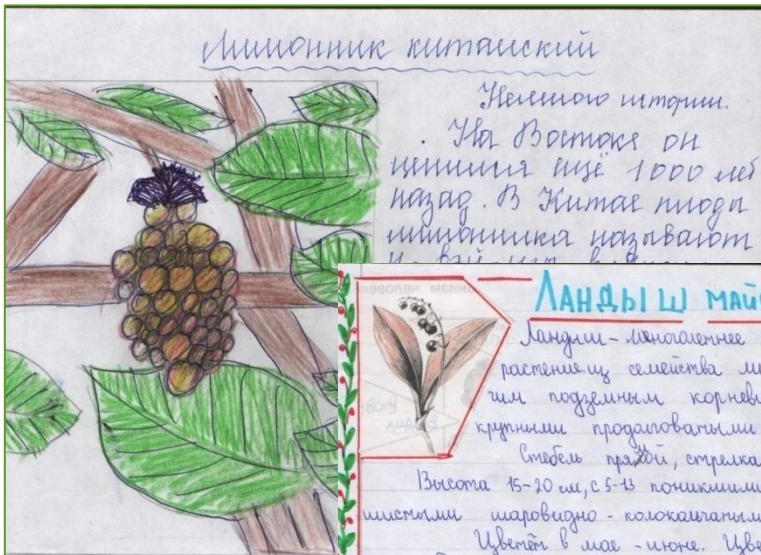 Лимонник китайский
Немного истории.
На Востоке он
ценился ещё 1000 лет
назад. В Китае плоды
лимонника называют
ЛАНДЫШ МАЙ
Ландыш - многолетнее
растение из семейства ли
чим подземным корневи
крупными продолговатыми
Стебель прямой, стрелка
Высота 15-20 см, с 5-13 поникшими
шистыми шаровидно-колокольчатым
Цветёт в мае - июне. Цве